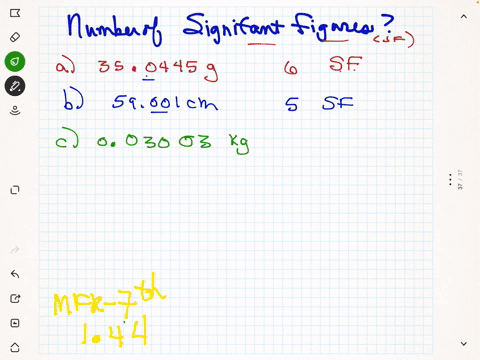 Number of Signifant Figures?
(SF)
a) 35.0445 g 6 SF
b) 59.001 cm 5 SF
c) 0.03003 kg
MFR-7th
1.44
37 / 37